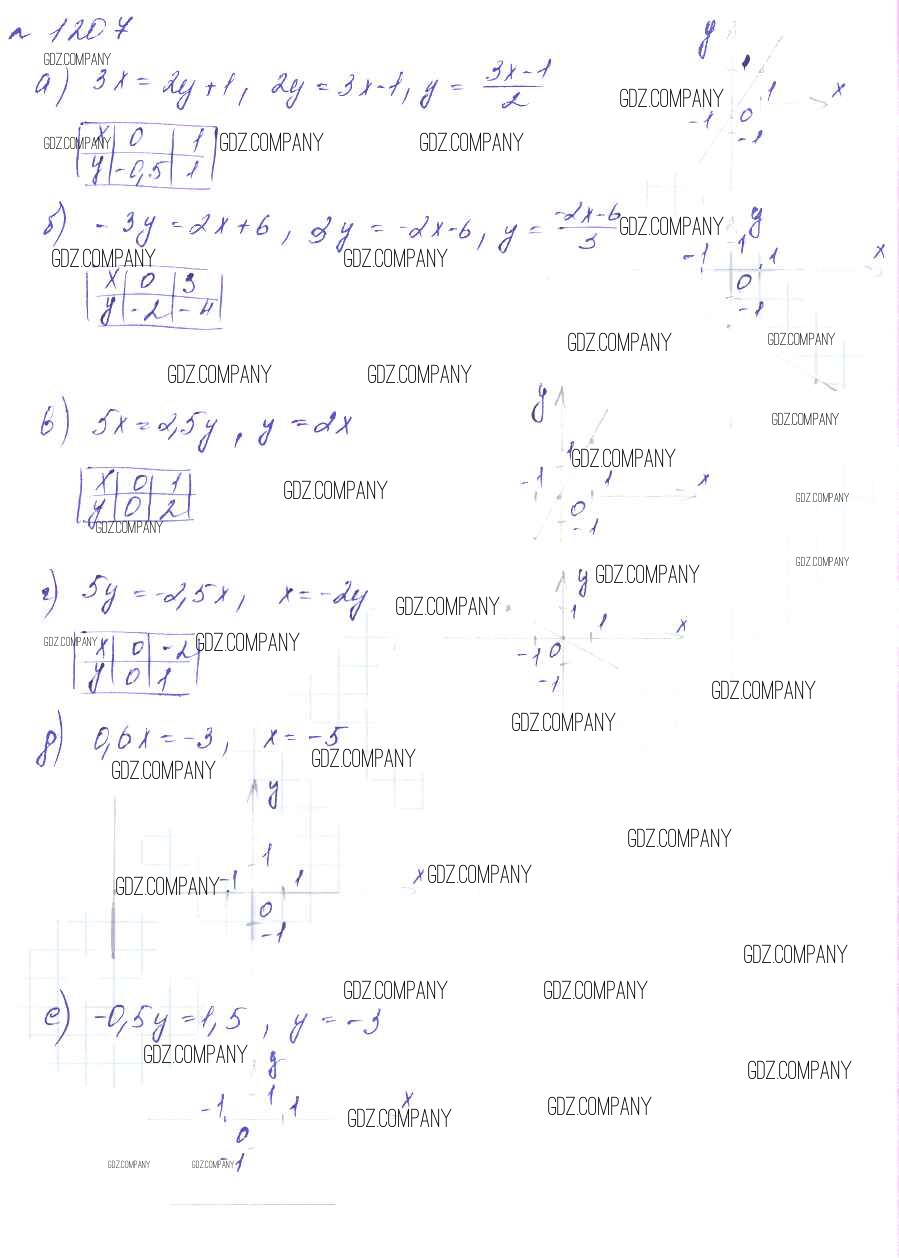 № 1207
GDZ.COMPANY
а) 3x = 2y + 1, 2y = 3x - 1, y = (3x - 1)/2
y
x
GDZ.COMPANY
1
-1
0
-1
GDZ.COMPANY GDZ.COMPANY GDZ.COMPANY
x 0 1
y -0,5 1
б) -3y = 2x + 6, 3y = -2x - 6, y = (-2x - 6)/3
GDZ.COMPANY
GDZ.COMPANY GDZ.COMPANY
y
x
-1 1 1
0
-1
x 0 3
y -2 -4
GDZ.COMPANY GDZ.COMPANY
GDZ.COMPANY GDZ.COMPANY
в) 5x = 2,5y, y = 2x
y
GDZ.COMPANY
1
GDZ.COMPANY
-1 1 x
0
-1
x 0 1
y 0 2
GDZ.COMPANY GDZ.COMPANY
GDZ.COMPANY
GDZ.COMPANY
г) 5y = -2,5x, x = -2y
y GDZ.COMPANY
GDZ.COMPANY
1 1 x
-1 0
-1
GDZ.COMPANY GDZ.COMPANY
x 0 -2
y 0 1
GDZ.COMPANY
GDZ.COMPANY
д) 0,6x = -3, x = -5
GDZ.COMPANY GDZ.COMPANY
y
GDZ.COMPANY
1
GDZ.COMPANY -1 1 x GDZ.COMPANY
0
-1
GDZ.COMPANY
GDZ.COMPANY GDZ.COMPANY
е) -0,5y = 1,5, y = -3
GDZ.COMPANY y
GDZ.COMPANY
-1 1 1 x
GDZ.COMPANY GDZ.COMPANY
0
-1
GDZ.COMPANY GDZ.COMPANY